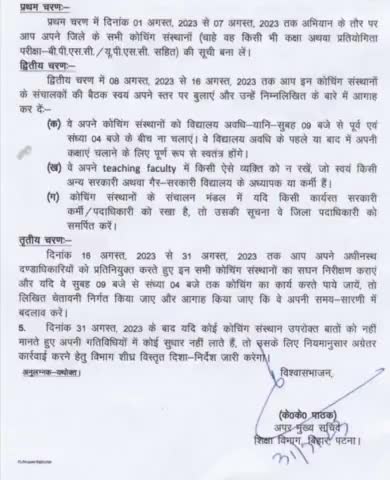 प्रथम चरणः-
प्रथम चरण में दिनांक 01 अगस्त, 2023 से 07 अगस्त, 2023 तक अभियान के तौर पर
आप अपने जिले के सभी कोचिंग संस्थानों (चाहे वह किसी भी कक्षा अथवा प्रतियोगिता
परीक्षा–बी.पी.एस.सी./यू.पी.एस.सी. सहित) की सूची बना लें।
द्वितीय चरणः-
द्वितीय चरण में 08 अगस्त, 2023 से 16 अगस्त, 2023 तक आप इन कोचिंग संस्थानों
के संचालकों की बैठक स्वयं अपने स्तर पर बुलाएं और उन्हें निम्नलिखित के बारे में आगाह
कर दें:-
(क) वे अपने कोचिंग संस्थानों को विद्यालय अवधि–यानि–सुबह 09 बजे से पूर्व एवं
संध्या 04 बजे के बीच ना चलाएं। वे विद्यालय अवधि के पहले या बाद में अपनी
कक्षाएं चलाने के लिए पूर्ण रूप से स्वतंत्र होंगे।
(ख) वे अपने teaching faculty में किसी ऐसे व्यक्ति को न रखें, जो स्वयं किसी
अन्य सरकारी अथवा गैर–सरकारी विद्यालय के अध्यापक या कर्मी हैं।
(ग) कोचिंग संस्थानों के संचालन मंडल में यदि किसी कार्यरत सरकारी
कर्मी/पदाधिकारी को रखा है, तो उसकी सूचना वे जिला पदाधिकारी को
समर्पित करें।
तृतीय चरणः-
दिनांक 16 अगस्त से 31 अगस्त, 2023 तक आप अपने अधीनस्थ
दण्डाधिकारियों को प्रतिनियुक्त करते हुए इन सभी कोचिंग संस्थानों का सघन निरीक्षण कराएं
और यदि वे सुबह 09 बजे से संध्या 04 बजे तक कोचिंग का कार्य करते पाये जायें, तो
लिखित चेतावनी निर्गत किया जाए और आगाह किया जाए कि वे अपनी समय–सारणी में
बदलाव करें।
5. दिनांक 31 अगस्त, 2023 के बाद यदि कोई कोचिंग संस्थान उपरोक्त बातों को नहीं
मानते हुए अपनी गतिविधियों में कोई सुधार नहीं लाते हैं, तो उसके लिए नियमानुसार अग्रेतर
कार्रवाई करने हेतु विभाग शीघ्र विस्तृत दिशा–निर्देश जारी करेगा।
अनुलग्नक–यथोक्त।
विश्वासभाजन,
(के०के० पाठक)
अपर मुख्य सचिव
शिक्षा विभाग, बिहार, पटना।